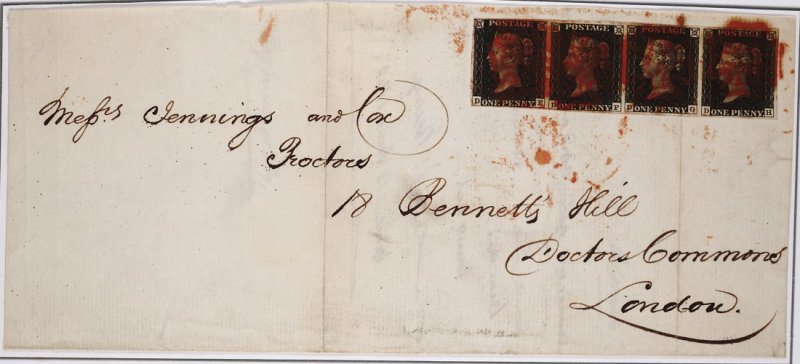 POSTAGE POSTAGE POSTAGE POSTAGE
D ONE PENNY E D ONE PENNY F D ONE PENNY G D ONE PENNY H
Messrs Jennings and Cox
Proctors
18 Bennett's Hill
Doctors Commons
London.